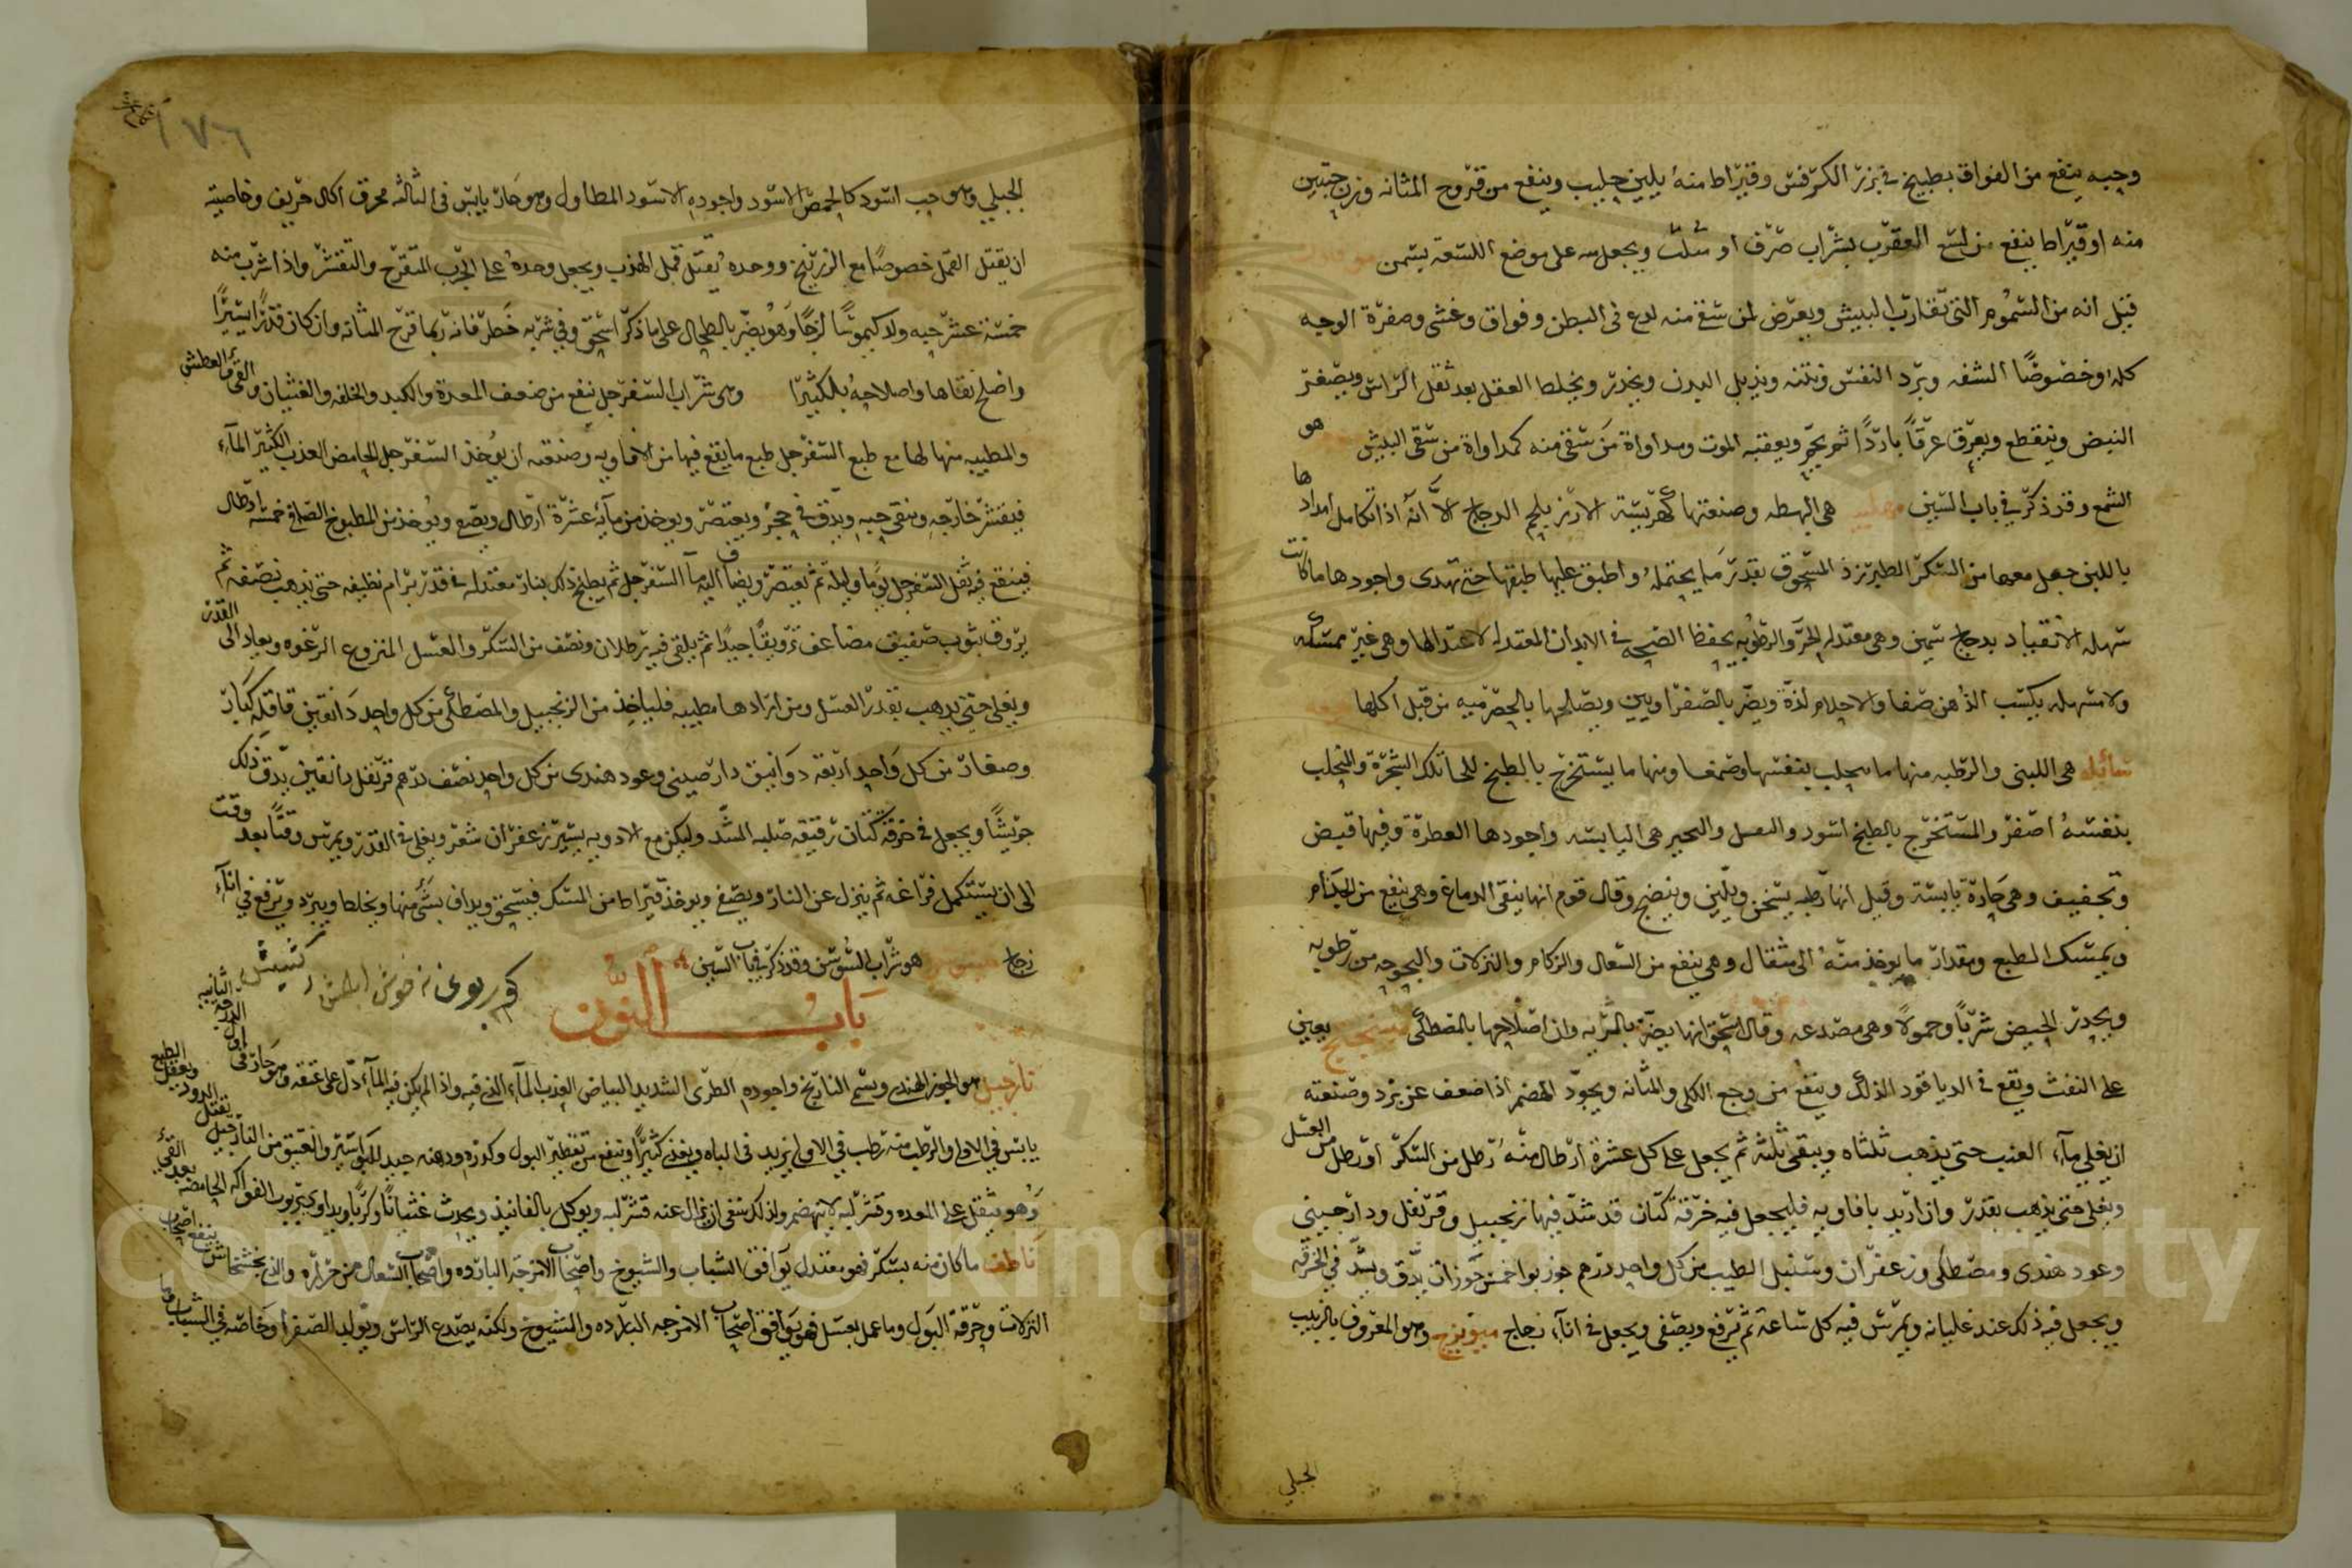 وحبه ينفع من الفواق بطبيخ في بزر الكرفس وقيراط منه يلين حليب وينفع من قروح المثانة وزن حبتين
منه او قيراط ينفع من لسع العقرب بشراب صرف او مثلث ويجعل منه على موضع اللسعة بسمن
قيل انه من السموم التي تقارب البيش ويعرض لمن سقي منه لدع في البطن وفواق وغشى وصفرة الوجه
كله وخصوصًا الشفه وبرد النفس ونتنه ويذبل البدن ويخدر ويخلط العقل بعد ثقل الراس ويصغر
النبض وينقطع ويعرق عرقًا باردًا ثم يعقبه الموت ومداواة من سقي منه كمداواة من سقى البيش هو
الشمع وقد ذكر في باب الشين مهلبيه هي البهطه وصنعتها كهريسة الارز بلحم الدجاج الا انه اذا تكامل امدادها
باللبن جعل معها من السكر الطبرزذ المسحوق بقدر ما يحتمله واطبق عليها طبقها حتى تهدى واجودها ما كانت
سهلة الانقياد بدجاج سمين وهي معتدلة الحر والرطوبه بحفظ الصحه في الابدان المعتدله لاعتدالها وهي غير ممسكه
ولا مسهله يكسب الذهن صفا والاحلام لذة ويضر بالصفراويين ويصلحها بالحصرميه من قبل اكلها
سائله هي اللبنى والرطبه منها ما يحلب بنفسها وصمغا ومنها ما يستخرج بالطبخ للحا تلك الشجرة والمتحلب
بنفسه اصفر والمستخرج بالطبخ اسود واجودها العطرة وفيها قبض
وتجفيف وهي حارة يابسة وقيل انها رطبه يسخن ويلين وينضج وقال قوم انها ينقي الدماغ وهي ينفع من الجذام
ويمسك الطبع ومقدار ما يوخذ منه الى مثقال وهي ينفع من السعال والزكام والنزلات والبحوحه من رطوبه
ويحدر الحيض شربًا وحمولًا وهي مصدعه وقال اسحق انها يضر بالريه وان اصلاحها بالمصطكى ميبختج يعين
على النفث ويقع في الدياقود لذلك وينفع من وجع الكلى والمثانه ويجود الهضم اذا ضعف عن برد وصنعته
ان يغلي مآء العنب حتى يذهب ثلثاه ويبقى ثلثه ثم يجعل على كل عشرة ارطال منه رطل من السكر او رطل من العسل
ويغلى حتى يذهب بقدر وان اريد بافاويه فليجعل فيه خرقة كتان قد شد فيها زنجبيل وقرنفل ودارصيني
وعود هندى ومصطكى وزعفران وسنبل الطيب من كل واحد درهم جوزبوا خمس جوزات يدق ويشد في الخرقه
ويجعل فيه ذلك عند غليانه ويمرس فيه كل ساعة ثم ترفع ويصفى ويجعل في انآء زجاج ميويزج وهو المعروف بالزبيب
الجبلي
١٧٦
الجبلي وهو حب اسود كالحمص الاسود واجوده الاسود المطاول وهو حار يابس في الثالثه محرق اكال حريف وخاصيته
ان يقتل القمل خصوصًا مع الزرنيخ ووحده يقتل قمل الهدب ويجعل وحده على الجرب المتقرح والتقشر واذا شرب منه
خمسة عشر حبه ولد كيموسًا لزجًا وهو يضر بالطحال على ما ذكر اسحق وفي شربه خطر فانه ربما قرح المثانه وان كان قدرًا يسيرًا
واصلح نقاها واصلاحه بالكثيرا وهي شراب السفرجل ينفع من ضعف المعدة والكبد والخلفه والغثيان والقئ والعطش
والمطيبه منها لها مع طبع السفرجل طبع ما يقع فيها من الافاويه وصنعته ان يوخذ السفرجل الحامض العذب الكثير المآء
فيقشر خارجه وينقى حبه ويدق في حجر ويعتصر ويوخذ من مآئه عشرة ارطال ويصفى ويوخذ من المطبوخ الصافي خمسة ارطال
فينقع فيه ثفل السفرجل يومًا وليله ثم يعتصر ويضاف اليه مآ السفرجل ثم يطبخ ذلك بنار معتدله في قدر برام نظيفه حتى يذهب نصفه ثم
يروق بثوب صفيق مضاعف ترويقًا جيدًا ثم يلقى فيه رطلان ونصف من السكر والعسل المنزوع الرغوه ويعاد الى القدر
ويغلي حتى يذهب بقدر العسل ومن ارادها مطيبه فلياخذ من الزنجبيل والمصطكى من كل واحد دانقين قاقله كبار
وصغار من كل واحد اربعة دوانيق دارصيني وعود هندى من كل واحد نصف درهم قرنفل دانقين يدق ذلك
جريشًا ويجعل في خرقة كتان رقيقه صلبه المشد وليكن مع الادويه يسير زعفران شعر ويغلى في القدر ويمرس وقتًا بعد وقت
الى ان يستكمل فراغه ثم ينزل عن النار ويصفى ويوخذ قيراط من المسك فيسحق ويداف بشئ منها ويخلط ويبرد ويرفع في انآء
زجاج ميسوسن هو شراب السوسن وقد ذكر في باب السين
باب النون
نارجيل هو الجوز الهندى ويسمى النارنج واجوده الطرى الشديد البياض العذب المآء الذي فيه واذا لم يكن فيه المآء دل على عتقه وهو حار في اول الدرجه الثانيه
يابس في الاولى والرطب منه رطب في الاولى يزيد في الباه ويغذى كثيرًا وينفع من تقطير البول وكدره ودهنه جيد للبواسير والعتيق من النارجيل يقتل الدود ويعقل الطبع
وهو ثقيل على المعده وقشر لبه لا ينهضم ولذلك ينبغي ان يزال عنه قشر لبه ويوكل بالفانيذ ويحدث غثيانًا وكربًا ويداوى بربوب الفواكه الحامضه بعد القئ
ناطف ما كان منه بسكر فهو معتدل يوافق الشباب والشيوخ واصحاب الامزجه البارده واصحاب السعال من حراره والذي بخشخاش ينفع اصحاب
النزلات وحرقة البول وما عمل بعسل فهو يوافق اصحاب الامزجه البارده والشيوخ ولكنه يصدع الراس ويولد الصفرا وخاصه في الشباب